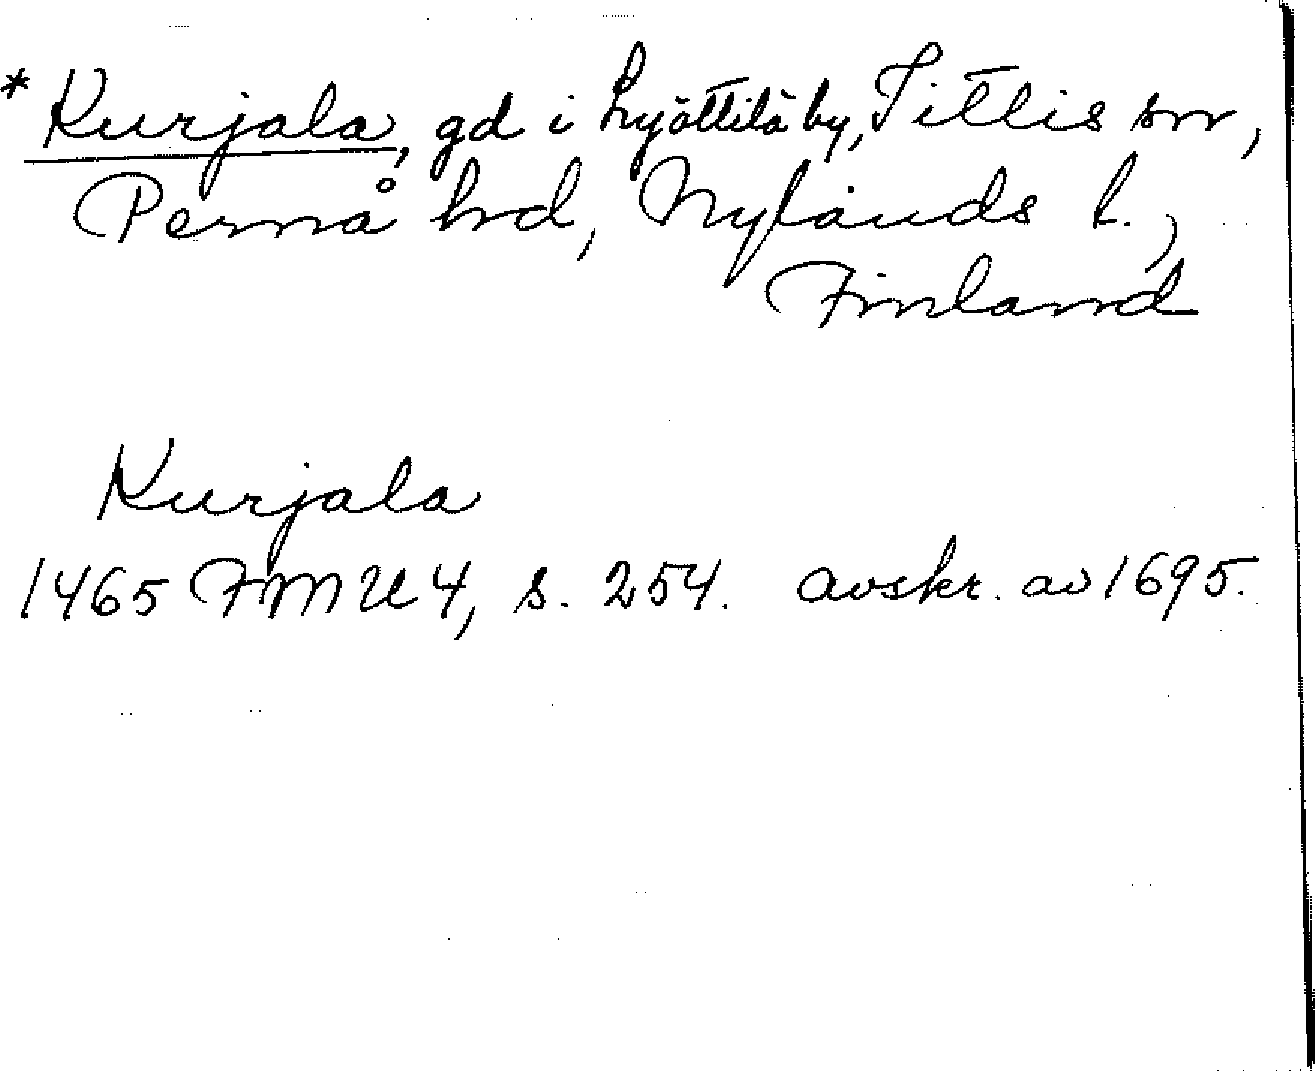 * Kurjala, gd i Lyöttilä by, Tittis sn,
Pernå hd, Nylands l.,
Finland
Kurjala
1465 FMU 4, s. 254. avskr. av 1695.